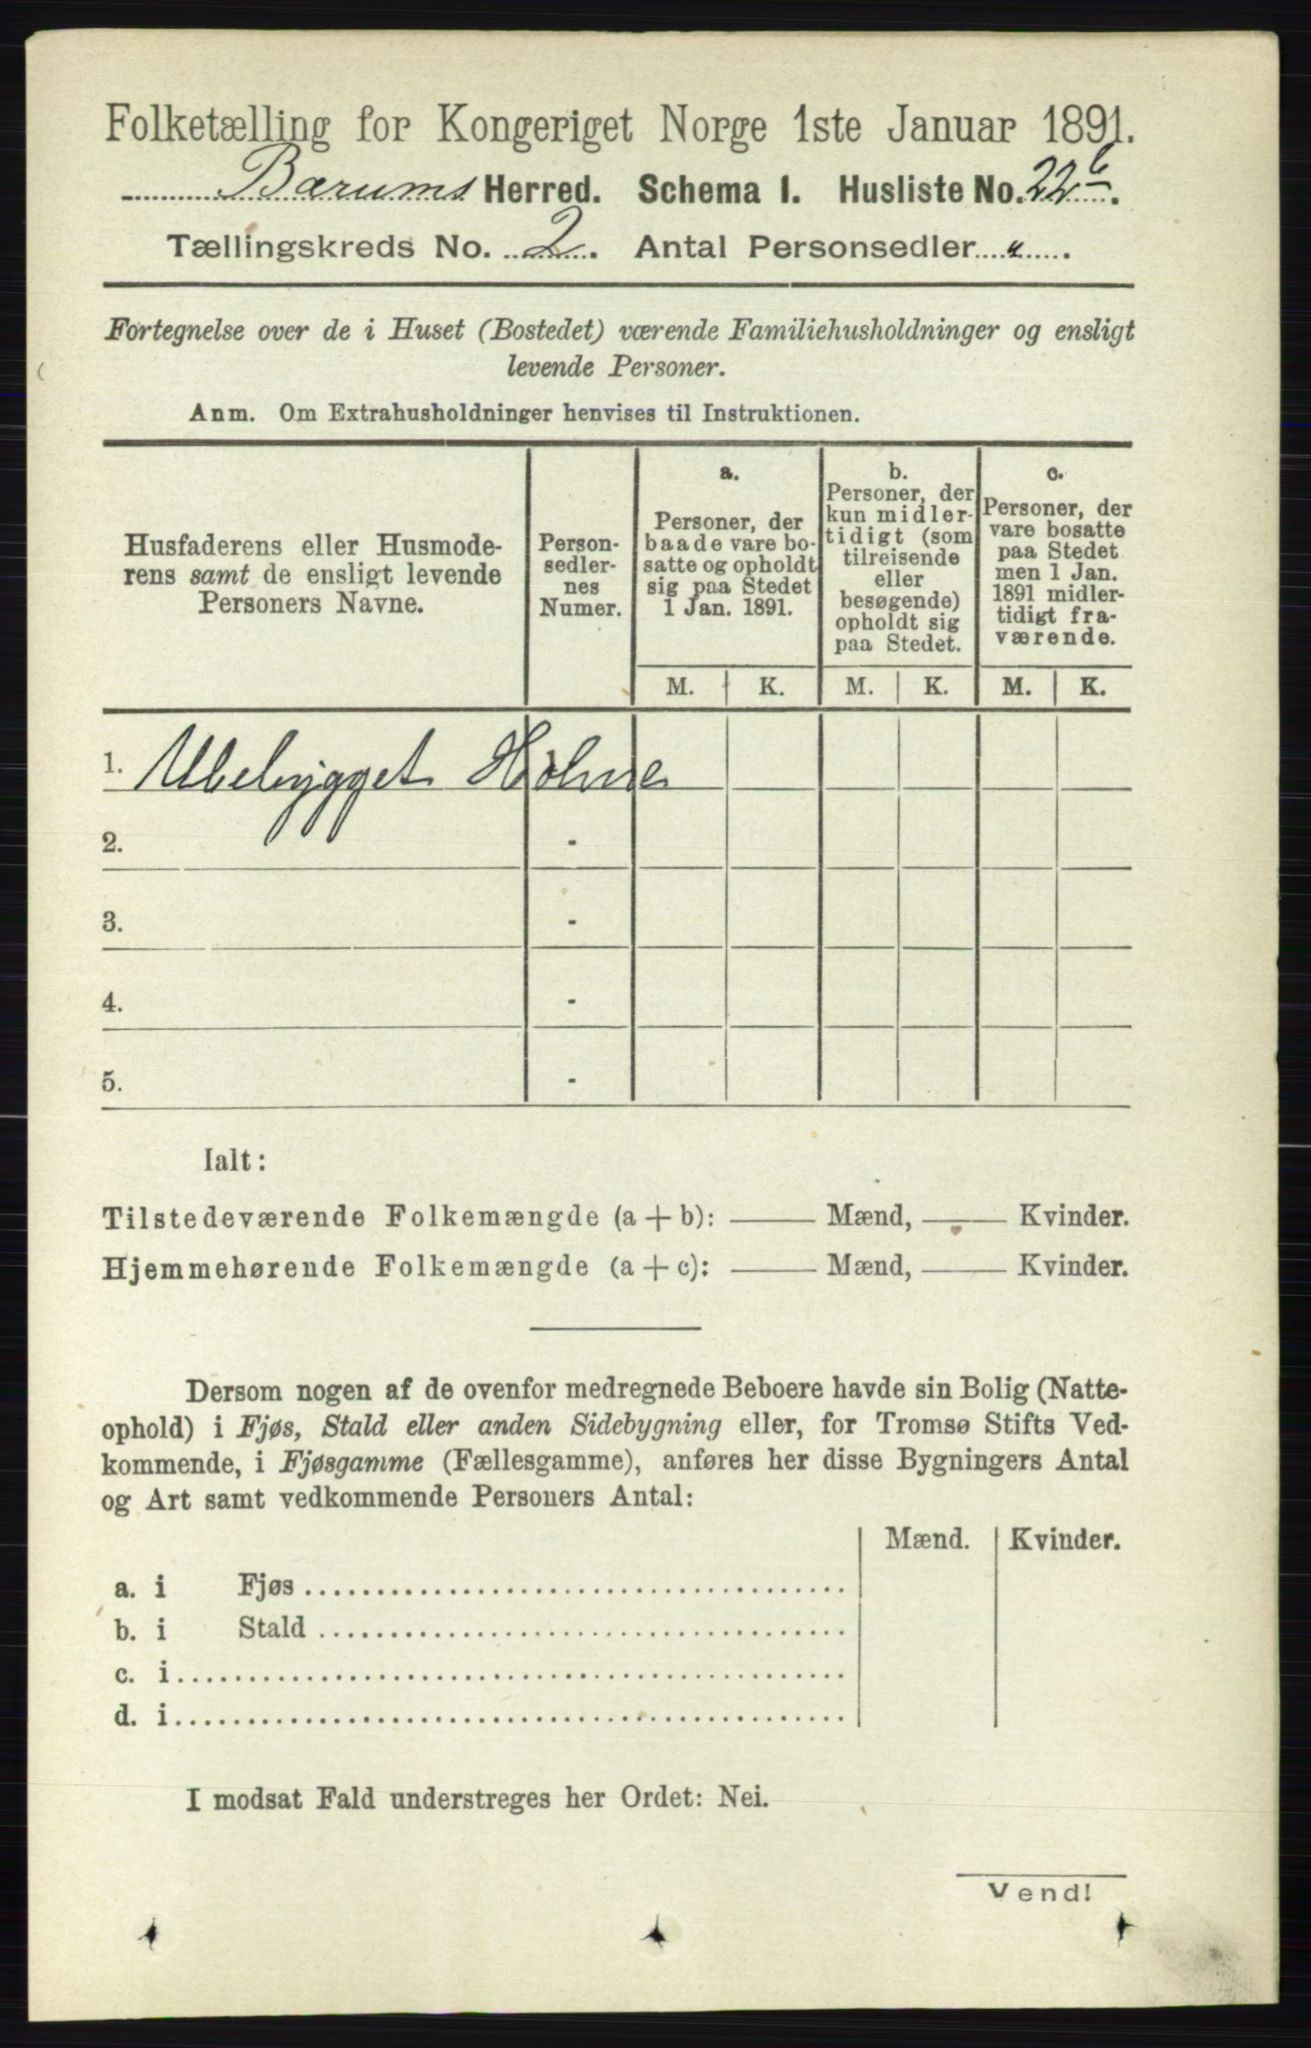 Folketælling for Kongeriget Norge 1ste Januar 1891.
Bærums Herred. Schema 1. Husliste No. 22b.
Tællingskreds No. 2. Antal Personsedler „.
Fortegnelse over de i Huset (Bostedet) værende Familiehusholdninger og ensligt
levende Personer.
Anm. Om Extrahusholdninger henvises til Instruktionen.
Husfaderens eller Husmode-
rens samt de ensligt levende
Personers Navne.
Person-
sedler-
nes
Numer.
a.
Personer, der
baade vare bo-
satte og opholdt
sig paa Stedet
1 Jan. 1891.
b.
Personer, der
kun midler-
tidigt (som
tilreisende
eller
besøgende)
opholdt sig
paa Stedet.
c.
Personer, der
vare bosatte
paa Stedet
men 1 Jan.
1891 midler-
tidigt fra-
værende.
M. K. M. K. M. K.
1. Ubebygget Holme
2. -
3. -
4. -
5. -
Ialt:
Tilstedeværende Folkemængde (a + b): —— Mænd, —— Kvinder.
Hjemmehørende Folkemængde (a + c): —— Mænd, —— Kvinder.
Dersom nogen af de ovenfor medregnede Beboere havde sin Bolig (Natte-
ophold) i Fjøs, Stald eller anden Sidebygning eller, for Tromsø Stifts Ved-
kommende, i Fjøsgamme (Fællesgamme), anføres her disse Bygningers Antal
og Art samt vedkommende Personers Antal:
Mænd. Kvinder.
a. i Fjøs
b. i Stald
c. i
d. i
I modsat Fald understreges her Ordet: Nei.
Vend!